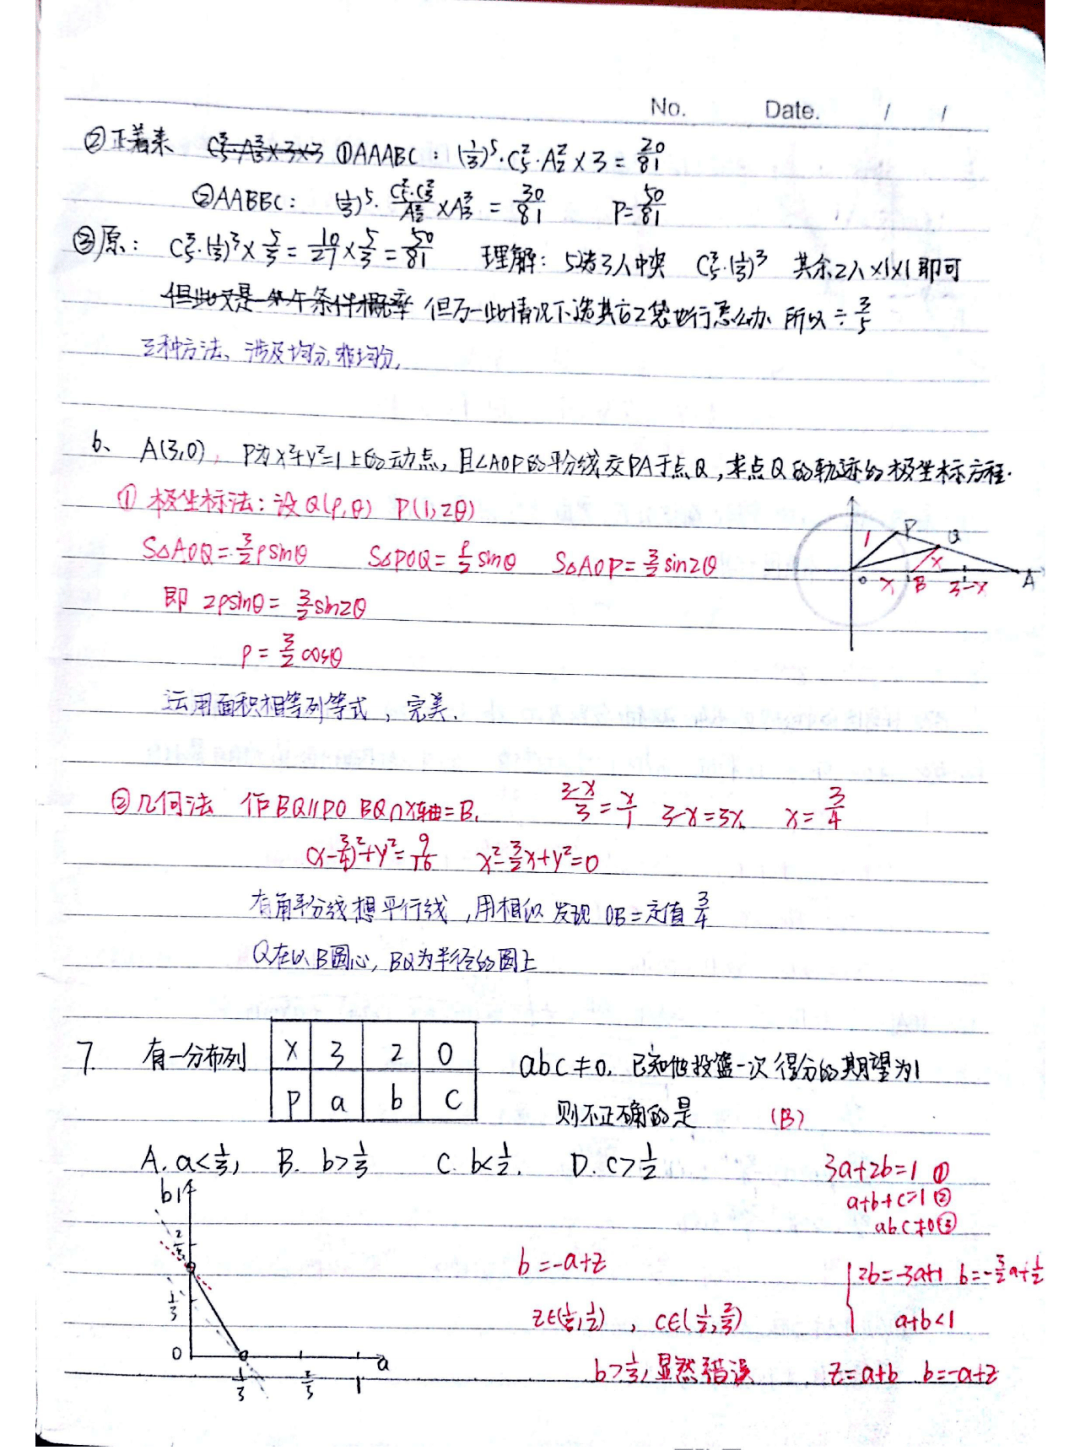 No. Date. / /
②正着来 ①AAABC: (1/3)^5·C₅²·A₂²×3=20/81
②AABBC: (1/3)^5·(C₅²·C₃²/A₂²)×A₃³=30/81 P=50/81
③原: C₅³·(1/3)³×5/3=10/27×5/3=50/81 理解: 5选3人中奖 C₅³·(1/3)³ 其余2人×1×1即可
但万一此情况下选其它2袋也行怎么办 所以÷3/5
三种方法、涉及均分,非均分,
6、 A(3,0), P为x²+y²=1上的动点,且∠AOP的平分线交PA于点Q,求点Q的轨迹的极坐标方程.
①极坐标法:设Q(ρ,θ) P(1,2θ)
S△AOQ=3/2ρsinθ S△POQ=ρ/2sinθ S△AOP=3/2sin2θ
即 2ρsinθ=3/2sin2θ
ρ=3/2cosθ
运用面积相等列等式,完美.
1 P Q x O x B 3-x A
②几何法 作BQ∥PO BQ∩x轴=B. (3-x)/3=x/1 3-x=3x x=3/4
(x-3/4)²+y²=9/16 x²-3/2x+y²=0
有角平分线想平行线,用相似 发现OB=定值3/4
Q在以B圆心,BQ为半径的圆上
7. 有一分布列 X 3 2 0 abc≠0. 已知他投篮一次得分的期望为1
P a b c 则不正确的是 (B)
A. a<1/3, B. b>1/3 C. b<1/2. D. c>1/2
3a+2b=1 ①
a+b+c=1 ②
abc≠0 ③
b 1 2/3 1/3 0 1/3 2/3 1 a
b=-a+z
2b=-3a+1 b=-3/2a+1/2
z∈(1/3,1/2), c∈(1/2,2/3) a+b<1
b>1/3,显然错误 z=a+b b=-a+z